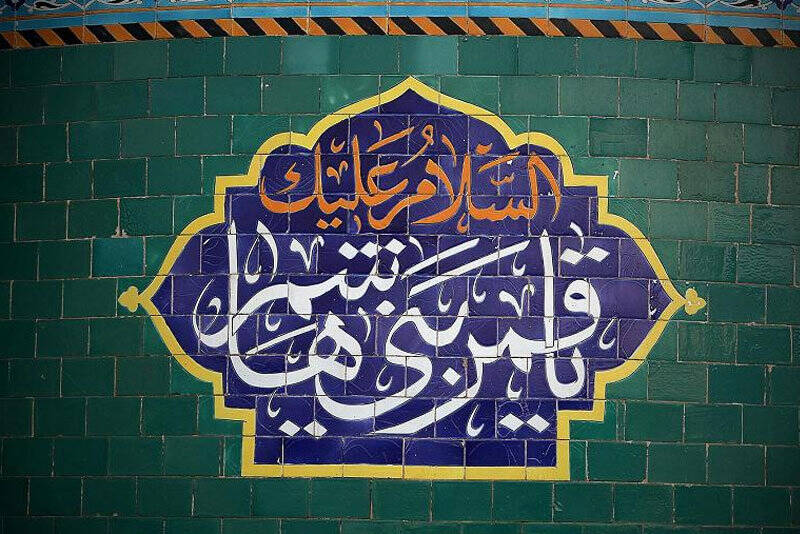 السَّلامُ عَلَيك
يا قمر بني هاشم